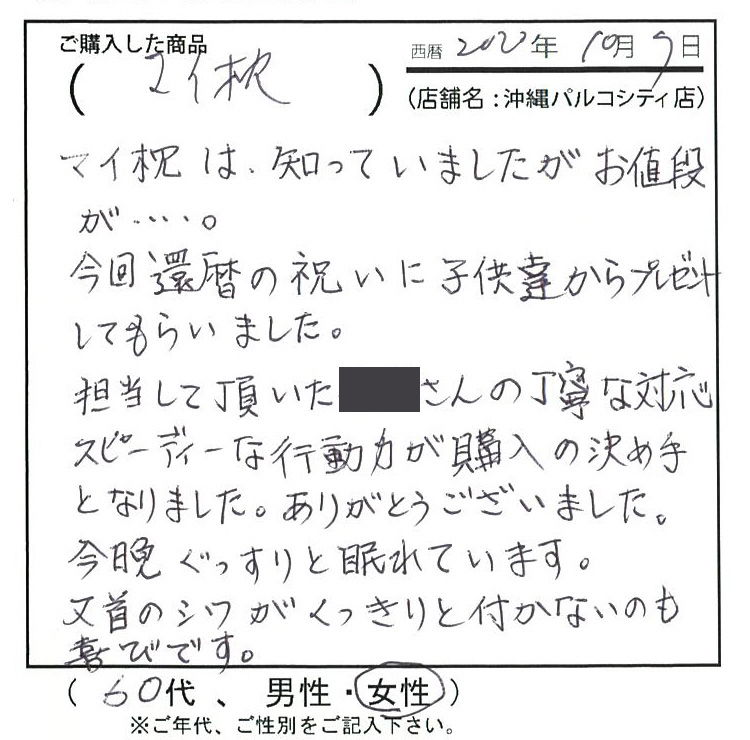 ご購入した商品
西暦 2020年 10月 9日
( マイ枕 )
(店舗名:沖縄パルコシティ店)
マイ枕は、知っていましたがお値段
が・・・・。
今回還暦の祝いに子供達からプレゼント
してもらいました。
担当して頂いた さんの丁寧な対応
スピーディーな行動力が購入の決め手
となりました。ありがとうございました。
今晩ぐっすりと眠れています。
又首のシワがくっきりと付かないのも
喜びです。
( 60代 、 男性・女性 )
※ご年代、ご性別をご記入下さい。